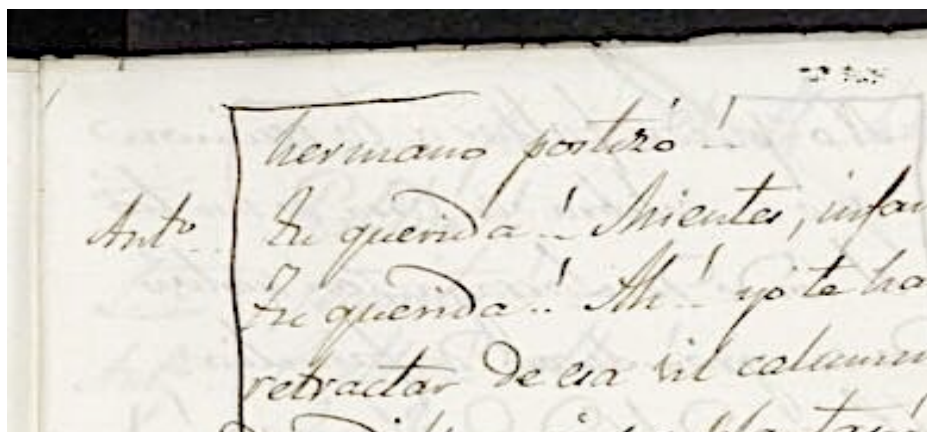 hermano postizo!...
Ant.º... Tu querida!... Mientes, infam
Tu querida!... Ah!... yo te ha
retractar de esa vil calumn